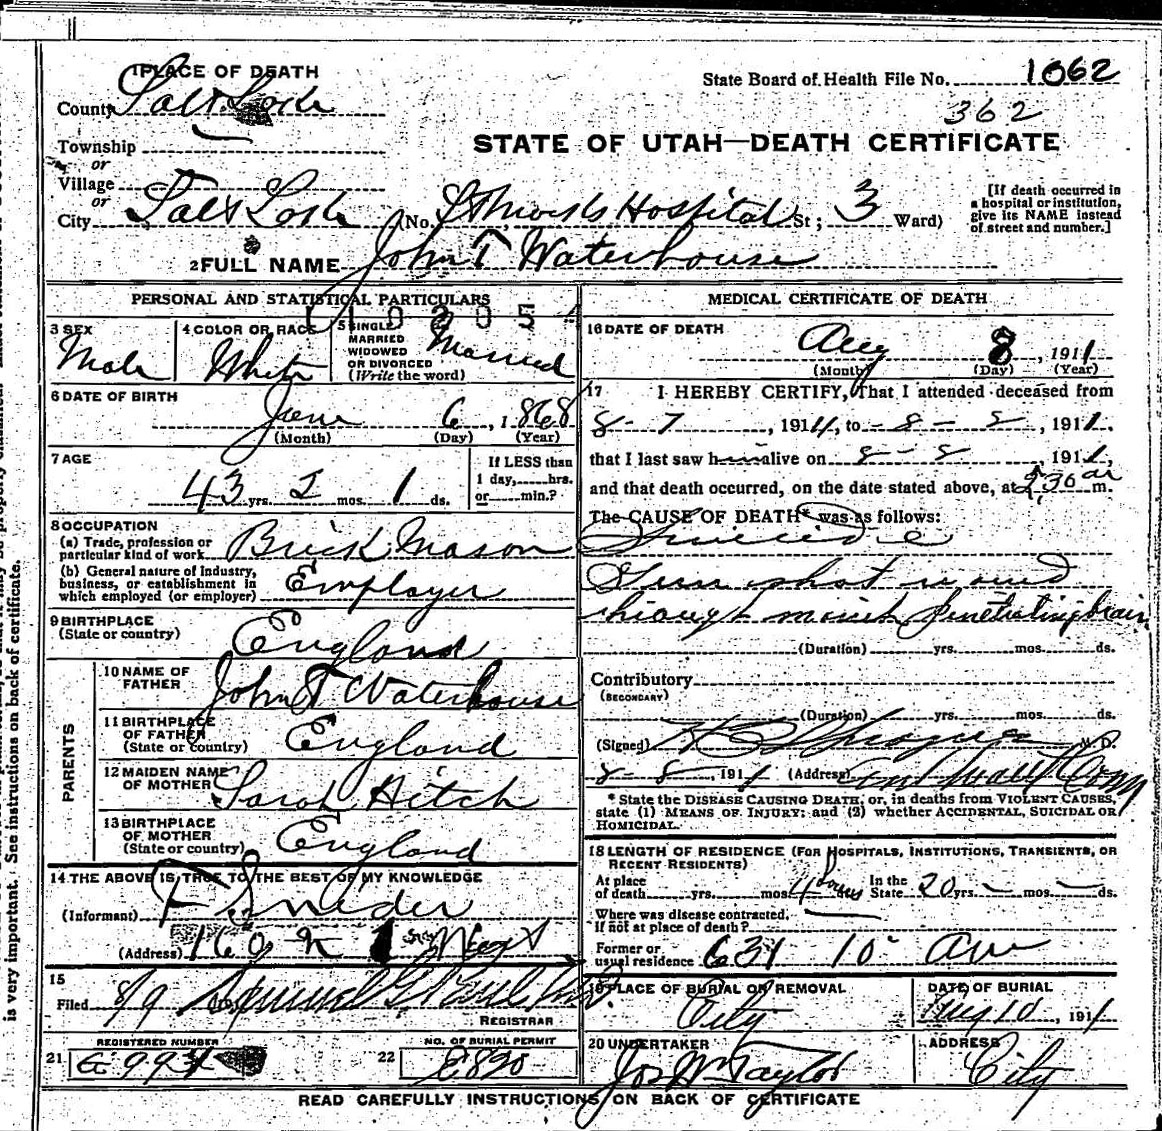 1 PLACE OF DEATH
State Board of Health File No. 1062
County Salt Lake
362
STATE OF UTAH—DEATH CERTIFICATE
Township
or
Village
or
City Salt Lake (No. Hospital St; 3 Ward)
[If death occurred in
a hospital or institution,
give its NAME instead
of street and number.]
2 FULL NAME John T Waterhouse
PERSONAL AND STATISTICAL PARTICULARS
3 SEX
Male
4 COLOR OR RACE
White
5 SINGLE
MARRIED
WIDOWED
OR DIVORCED
(Write the word)
Married
6 DATE OF BIRTH
June 6, 1868
(Month) (Day) (Year)
7 AGE
43 yrs. 2 mos. 1 ds.
If LESS than
1 day, hrs.
or min.?
8 OCCUPATION
(a) Trade, profession or
particular kind of work Brick Mason
(b) General nature of industry,
business, or establishment in
which employed (or employer) Employer
9 BIRTHPLACE
(State or country)
England
PARENTS
10 NAME OF
FATHER
John T Waterhouse
11 BIRTHPLACE
OF FATHER
(State or country)
England
12 MAIDEN NAME
OF MOTHER
Sarah Hitch
13 BIRTHPLACE
OF MOTHER
(State or country)
England
14 THE ABOVE IS TRUE TO THE BEST OF MY KNOWLEDGE
(Informant) F Snider
(Address) 160 N 1 West
15
Filed 8/9
REGISTRAR
REGISTERED NUMBER
21
NO. OF BURIAL PERMIT
22 E890
MEDICAL CERTIFICATE OF DEATH
16 DATE OF DEATH
Aug 8, 1911
(Month) (Day) (Year)
17 I HEREBY CERTIFY, That I attended deceased from
8-7, 1911, to 8-8, 1911.
that I last saw him alive on 8-8, 1911.
and that death occurred, on the date stated above, at 2:30 am m.
The CAUSE OF DEATH* was as follows:
Suicide
Gun shot wound
through mouth penetrating brain
(Duration) yrs. mos. ds.
Contributory
(SECONDARY)
(Duration) yrs. mos. ds.
(Signed) M. D.
8-8, 1911 (Address)
* State the DISEASE CAUSING DEATH, or, in deaths from VIOLENT CAUSES,
state (1) MEANS OF INJURY; and (2) whether ACCIDENTAL, SUICIDAL OR
HOMICIDAL.
18 LENGTH OF RESIDENCE (FOR HOSPITALS, INSTITUTIONS, TRANSIENTS, OR
RECENT RESIDENTS)
At place
of death yrs. mos. 4 hours In the
State 20 yrs. – mos. – ds.
Where was disease contracted,
if not at place of death?
Former or
usual residence 631 10 Ave
19 PLACE OF BURIAL OR REMOVAL
City
DATE OF BURIAL
Aug 10, 1911
20 UNDERTAKER
Jos Wm Taylor
ADDRESS
City
READ CAREFULLY INSTRUCTIONS ON BACK OF CERTIFICATE
is very important. See instructions on back of certificate.